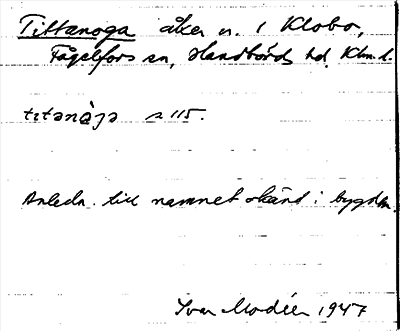 Tittanoga åker n. 1 Klobo,
Fågelfors sn, Handbörds hd. Klm. l.
tıtanòja s 115.
Anledn. till namnet okänd i bygden.
Ivar Modéer 1947